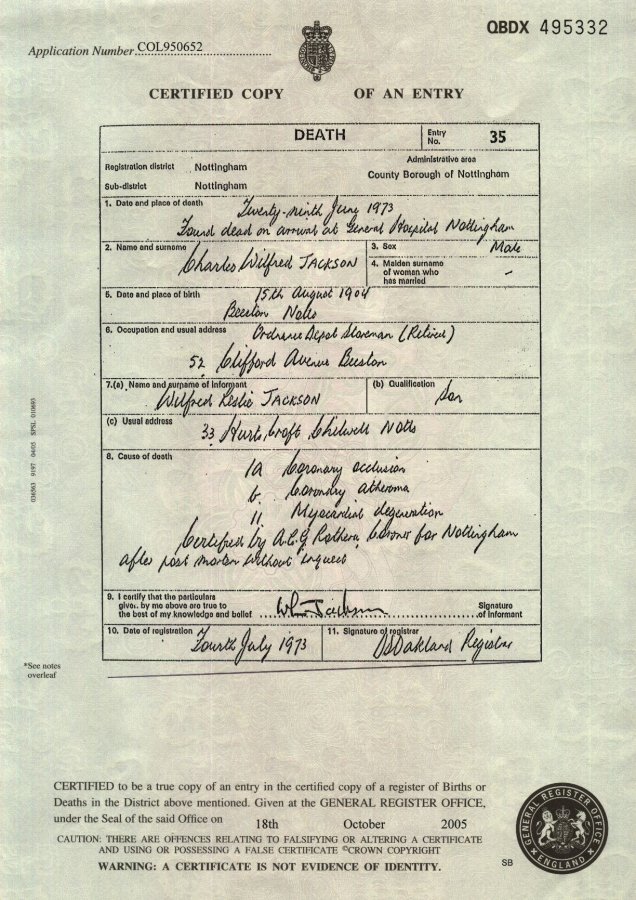 QBDX 495332
Application Number COL950652
CERTIFIED COPY OF AN ENTRY
DEATH Entry No. 35
Registration district Nottingham
Administrative area
County Borough of Nottingham
Sub-district Nottingham
1. Date and place of death Twenty-ninth June 1973
Found dead on arrival at General Hospital Nottingham
2. Name and surname Charles Wilfred JACKSON
3. Sex Male
4. Maiden surname of woman who has married –
5. Date and place of birth 15th August 1904
Beeston Notts
6. Occupation and usual address Ordnance Depot Storeman (Retired)
52 Clifford Avenue Beeston
7.(a) Name and surname of informant Wilfred Leslie JACKSON
(b) Qualification Son
(c) Usual address 33 Hurts Croft Chilwell Notts
8. Cause of death
1a Coronary occlusion
b. Coronary atheroma
11 Myocardial degeneration
Certified by A.C.G. Rothera Coroner for Nottingham
after post mortem without inquest
9. I certify that the particulars
given by me above are true to
the best of my knowledge and belief W L Jackson Signature of informant
10. Date of registration Fourth July 1973
11. Signature of registrar Oakland Registrar
*See notes
overleaf
036563 9197 04/05 SPSL 010693
CERTIFIED to be a true copy of an entry in the certified copy of a register of Births or
Deaths in the District above mentioned. Given at the GENERAL REGISTER OFFICE,
under the Seal of the said Office on 18th October 2005
CAUTION: THERE ARE OFFENCES RELATING TO FALSIFYING OR ALTERING A CERTIFICATE
AND USING OR POSSESSING A FALSE CERTIFICATE ©CROWN COPYRIGHT
WARNING: A CERTIFICATE IS NOT EVIDENCE OF IDENTITY.
SB
GENERAL REGISTER OFFICE
ENGLAND